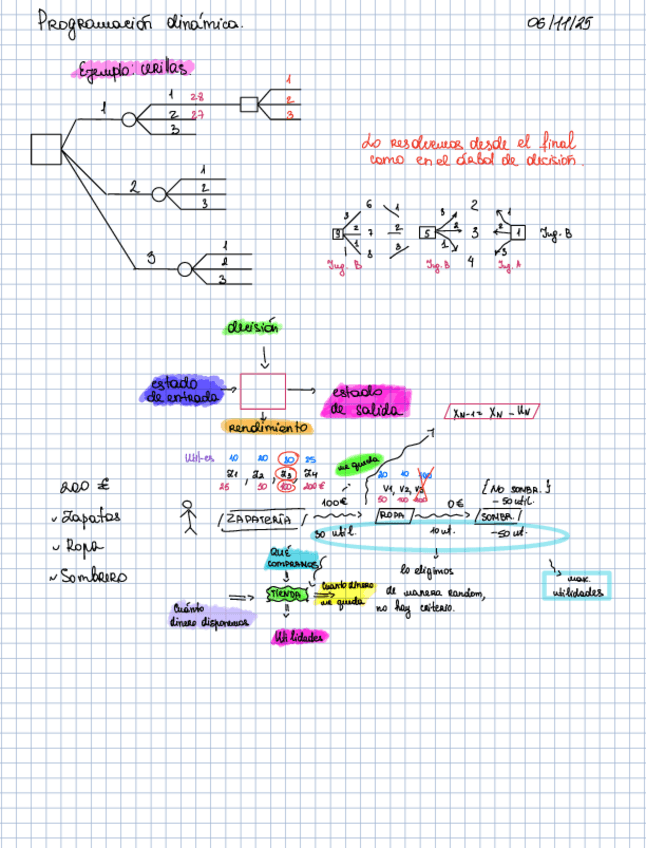 Programación dinámica.
06/11/25
Ejemplo: cerillas.
1
1 28
2 27
3
1
2
3
2
1
2
3
3
1
2
3
Lo resolvemos desde el final
como en el árbol de decisión.
9
3 6 1
2 7 2
1 8 3
Jug. B
5
3 2 1
2 3 2
1 4 3
1
Jug. B
Jug. B
Jug. A
decisión
estado de entrada
estado de salida
rendimiento
XN-1 = XN - UN
Util-es 10 20 30 25
Z1, Z2, Z3, Z4
25 50 100 200€
me queda
20 10
V1, V2, V3
50 100
200 €
Zapatos
Ropa
Sombrero
ZAPATERÍA
100€
ROPA
0€
SOMBR.
[NO SOMBR.]
-50 util.
30 util.
10 ut.
-50 ut.
QUÉ COMPRAMOS
TIENDA
Cuánto dinero me queda
Cuánto dinero disponemos
Utilidades
lo elegimos
de manera random,
no hay criterio.
max. utilidades